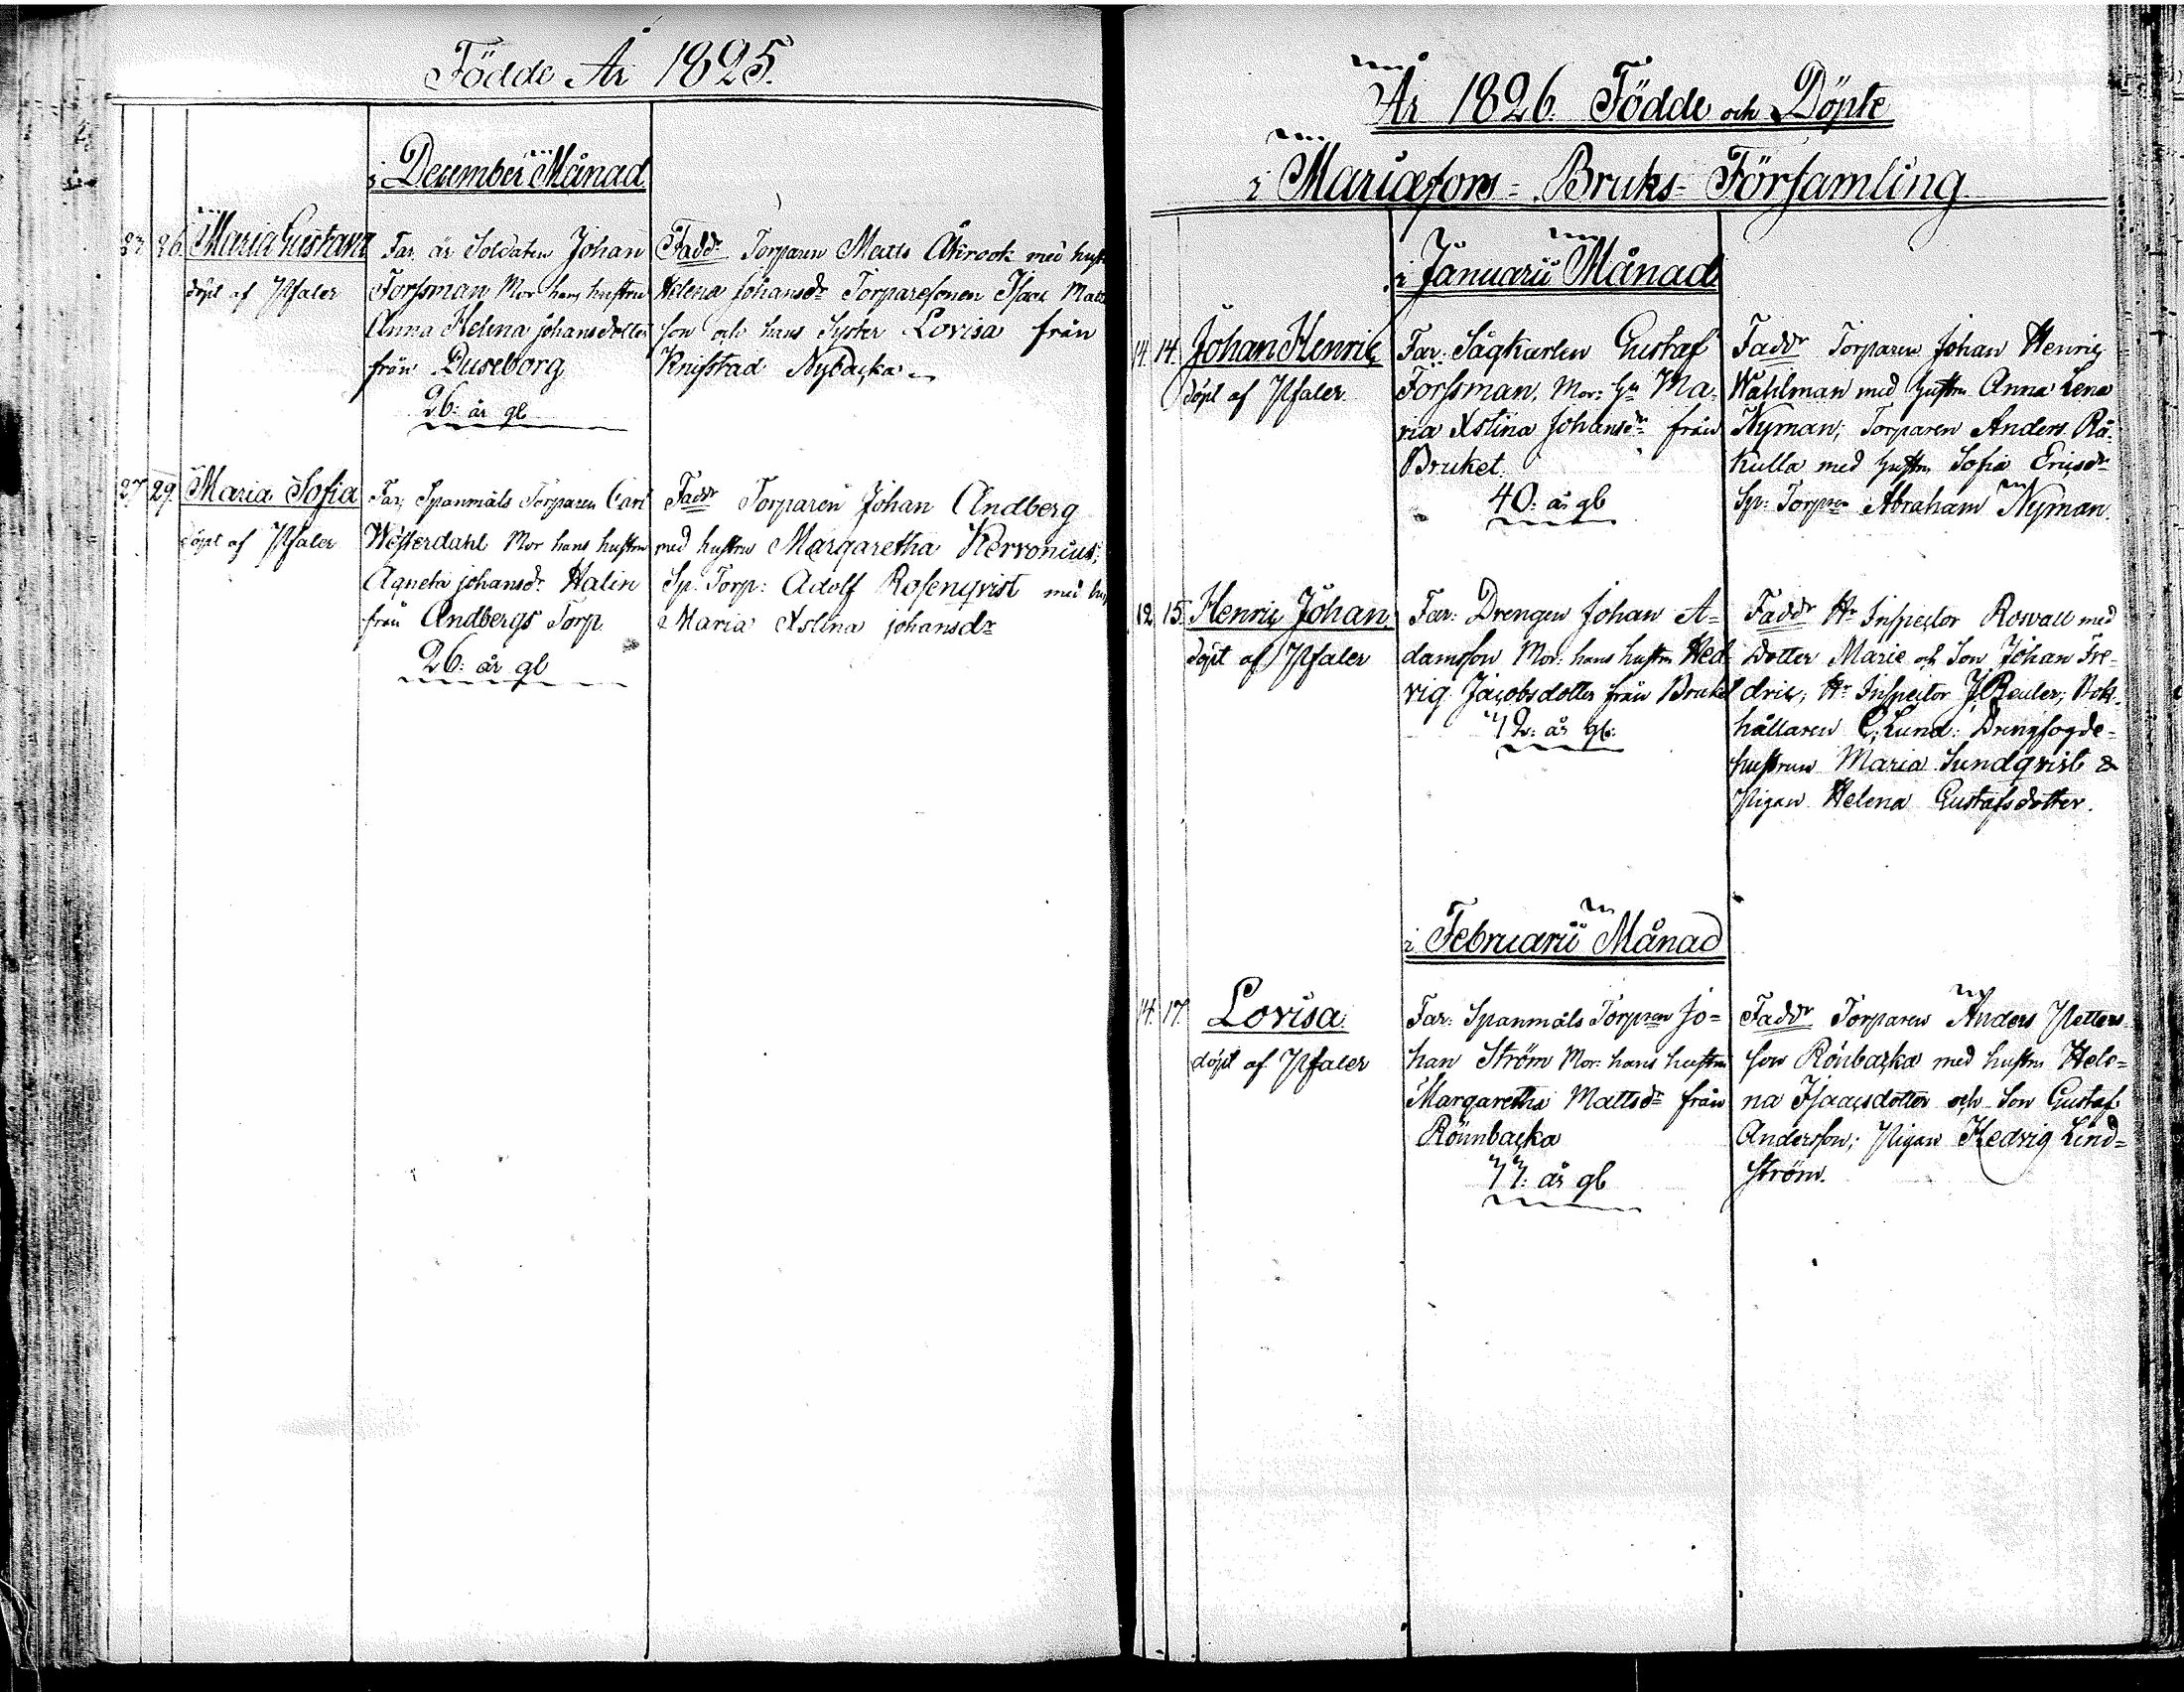 Födde År 1825.
i December Månad
23. 26. Maria Gustava
döpt af Pfaler
Far är Soldaten Johan
Forssman Mor hans hustru
Anna Helena Johansdotter
från Duseborg
26: år gl
Faddr Torparen Matts Åkrook med hustr
Helena Johansdr Torparesonen Isaac Matts
son och hans Syster Lovisa från
Knifstad Nybacka
27. 29. Maria Sofia
döpt af Pfaler
Far, Spanmåls Torparen Carl
Westerdahl Mor hans hustru
Agneta Johansdr Halin
från Andbergs Torp
26: år gl
Faddr Torparen Johan Andberg
med hustru Margaretha Kervonius;
Sp. Torp: Adolf Rosenqvist med hus
Maria Xstina Johansdr
År 1826. Födde och Döpte
i Mariæfors=Bruks=Församling
i Januarii Månad
14. 14. Johan Henric
döpt af Pfaler
Far: Sågkarlen Gustaf
Forssman, Mor: Hu Ma-
ria Xstina Johansdr från
Bruket.
40: år gl
Faddr Torparen Johan Henric
Wahlman med hustru Anna Lena
Nyman; Torparen Anders Rå-
kulla med hustru Sofia Ericsdr
Sp: Torpren Abraham Nyman.
12. 15. Henric Johan
döpt af Pfaler
Far: Drengen Johan A=
damsson Mor: hans hustru Hed-
vig Jacobsdotter från Bruket
42: år gl:
Faddr Hr Inspector Rosvall med
Dotter Marie och Son Johan Fre-
dric; Hr Inspector J. Reuler; Bok-
hållaren C. Lund: Drengfogde-
hustrun Maria Sundqvist &
Pigan Helena Gustafsdotter.
i Februarii Månad
14. 17. Lovisa.
döpt af Pfaler
Far: Spanmåls Torpren Jo=
han Ström Mor: hans hustru
Margaretha Mattsdr från
Rönnbacka
44: år gl
Faddr Torparen Anders Petters
son Rönbacka med hustru Hele=
na Isaacsdotter och Son Gustaf
Andersson; Pigan Hedvig Lind=
ström.